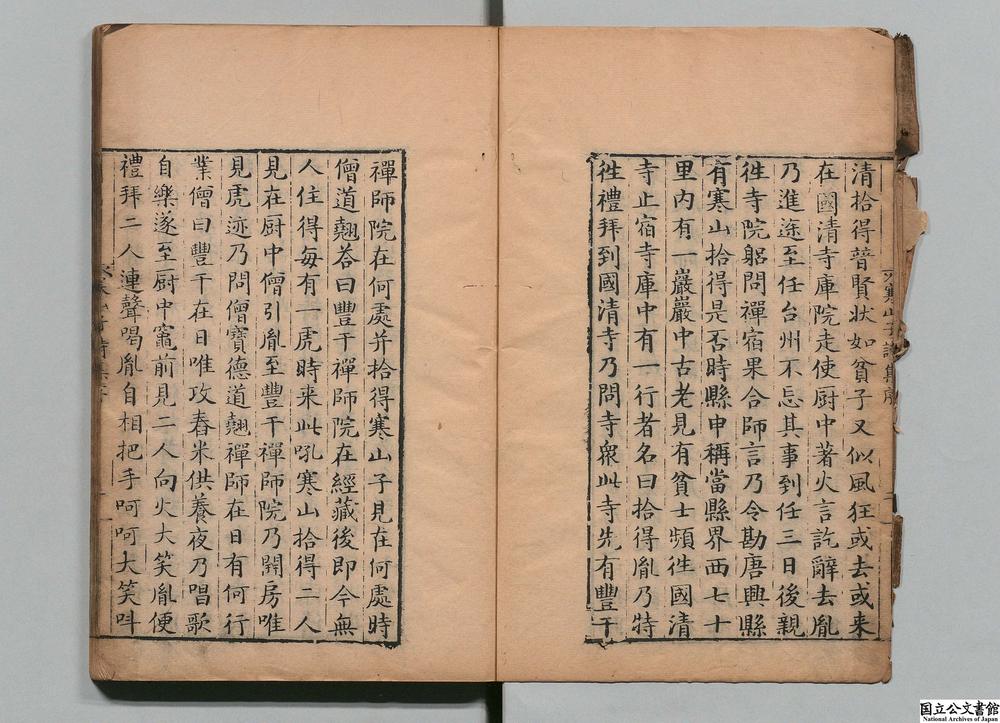 清拾得普賢狀如貧子又似風狂或去或来
在國清寺庫院走使厨中著火言訖辭去胤
乃進途至任台州不忘其事到任三日後親
徃寺院躬問禪宿果合師言乃令勘唐興縣
有寒山拾得是否時縣申稱當縣界西七十
里内有一巖巖中古老見有貧士頻徃國清
寺止宿寺庫中有一行者名曰拾得胤乃特
徃禮拜到國清寺乃問寺衆此寺先有豐干
禪師院在何處并拾得寒山子見在何處時
僧道翹荅曰豐干禪師院在經藏後即今無
人住得每有一虎時来此吼寒山拾得二人
見在厨中僧引胤至豐干禪師院乃開房唯
見虎迹乃問僧寶德道翹禪師在日有何行
業僧曰豐干在日唯攻舂米供養夜乃唱歌
自樂遂至厨中竈前見二人向火大笑胤便
禮拜二人連聲喝胤自相把手呵呵大笑呌
国立公文書館
National Archives of Japan